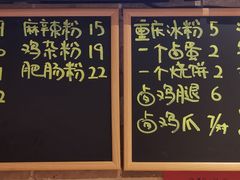 麻辣粉 15
鸡杂粉 19
肥肠粉 22
重庆冰粉 5
一个卤蛋 2
一个烧饼 2
卤鸡腿 6
卤鸡爪 7/对